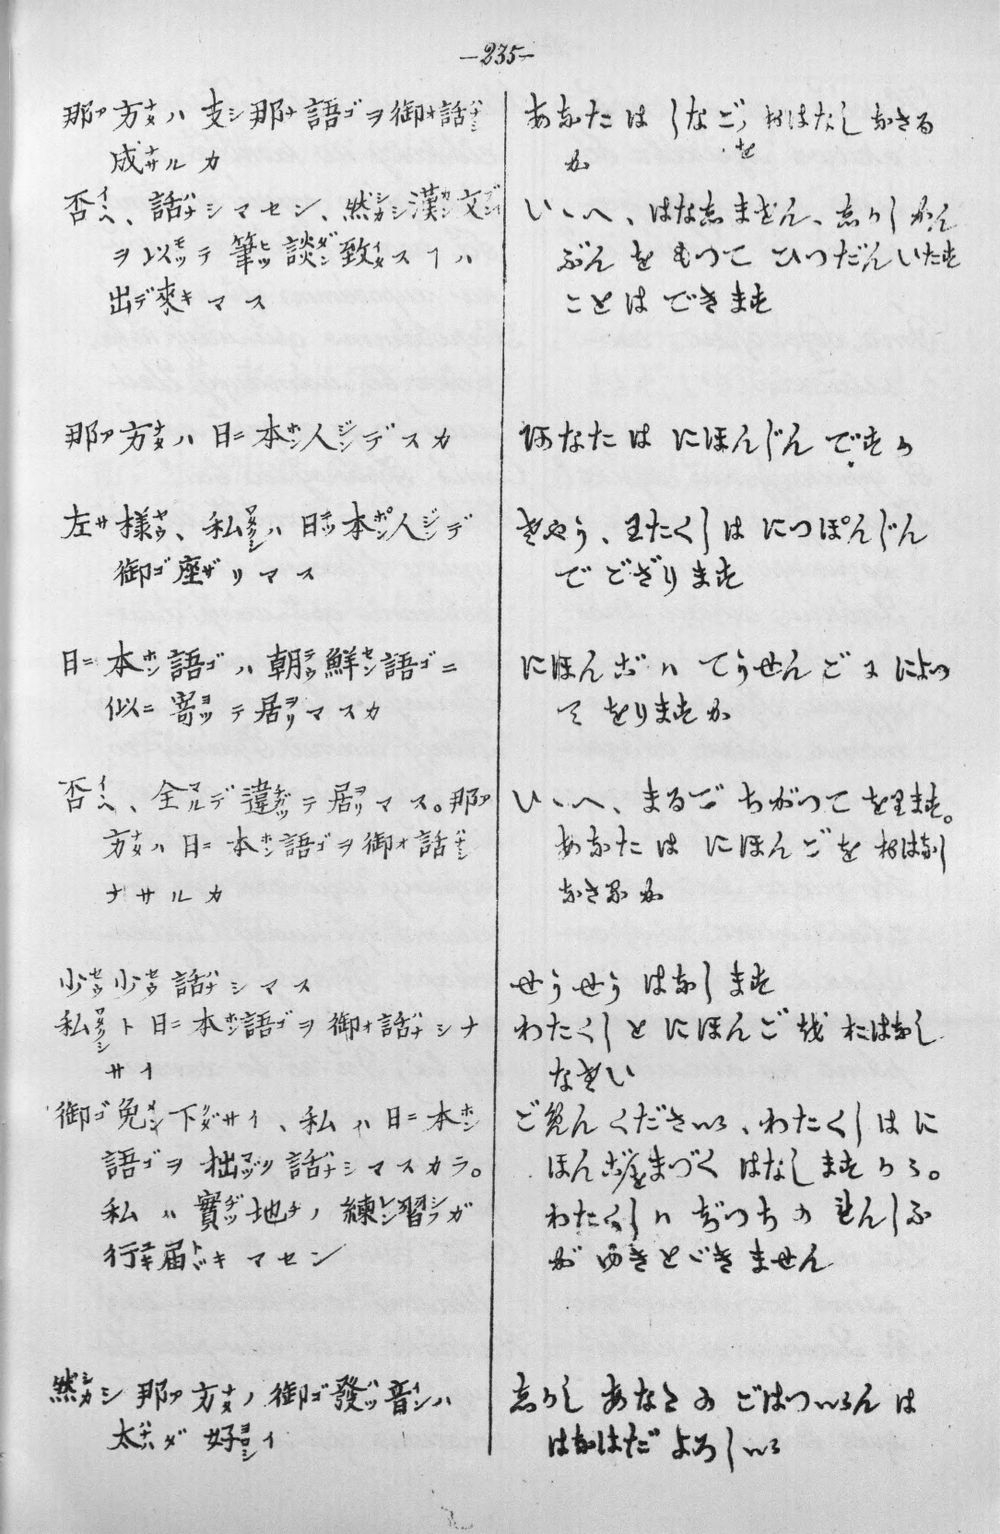 —235—
那方ハ支那語ヲ御話
成ルカ
否、話シマセン、然シ漢文
ヲ以テ筆談致スヿハ
出來マス
那方ハ日本人デスカ
左樣、私ハ日本人デ
御座リマス
日本語ハ朝鮮語ニ
似寄テ居マスカ
否、全デ違テ居マス。那
方ハ日本語ヲ御話
ナサルカ
少少話シマス
私ト日本語ヲ御話シナ
サイ
御免下サイ、私ハ日本
語ヲ拙ク話シマスカラ。
私ハ實地ノ練習ガ
行届キマセン
然シ那方ノ御發音ハ
太ダ好イ
あなたは しなごを おはなし なさる
か
いゝへ、はなしません、しかし かん
ぶん を もつて ひつだん いたす
ことは できます
あなたは にほんじん ですか
さやう、わたくしは につぽんじん
で ござります
にほんごハ てうせんごに によつ
て をりますか
いゝへ、まるで ちがつて をります。
あなたは にほんごを おはなし
なさるか
せうせう はなします
わたくしと にほんごを おはなし
なさい
ごめん ください、わたくしは に
ほんごを まづく はなしますから。
わたくしハ ぢつちの れんしふ
が ゆきとどきません
しかし あなたの ごはついんは
はなはだ よろしい